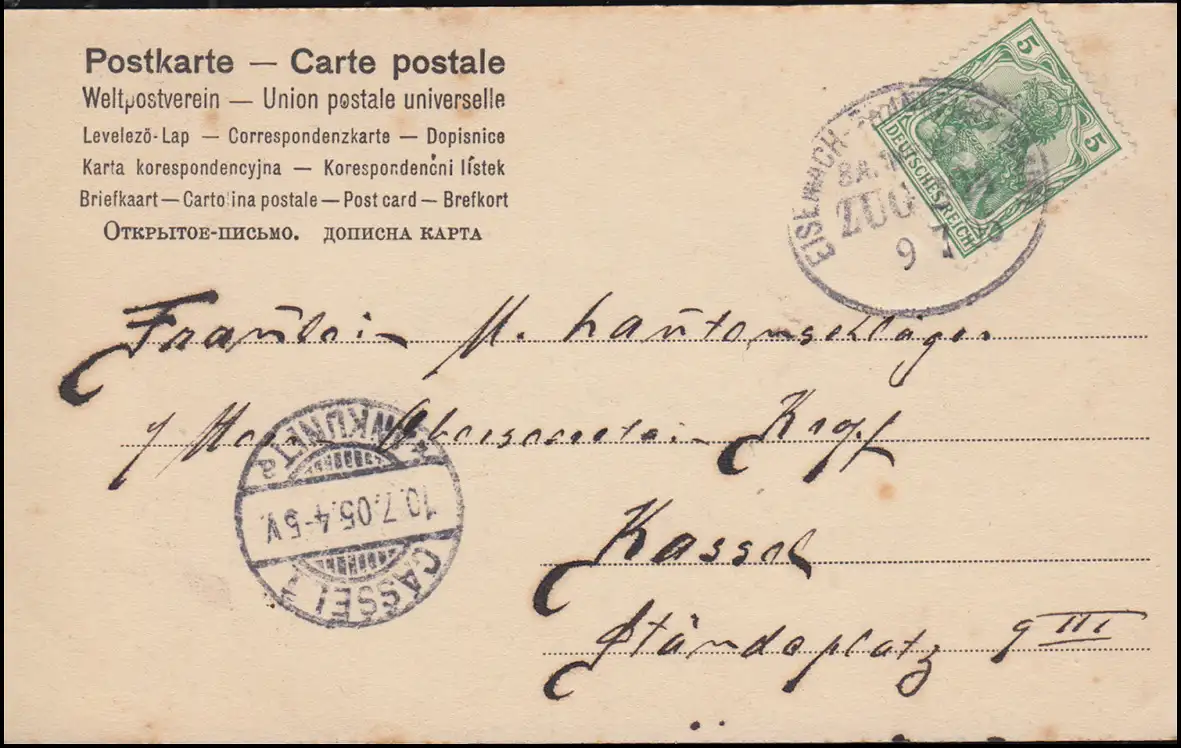 Postkarte — Carte postale
Weltpostverein — Union postale universelle
Levelező-Lap — Correspondenzkarte — Dopisnice
Karta korespondencyjna — Korespondenční lístek
Briefkaart — Cartolina postale — Post card — Brefkort
Открытое-письмо. дописна карта
5
5
DEUTSCHES REICH
EISENACH-
ZUG
9 7
Fräulein M. Lautenschläger
Herrn Obersecretair
Kassel
Ständeplatz 9 III
ANKUNFT
10.7.05.4-5V.
CASSEL 1